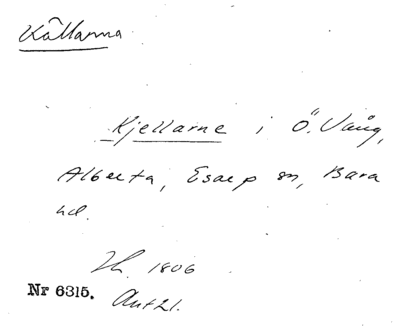 Källarna
Kjellarne i Ö. Vång,
Alberta, Esarp sn, Bara
hd.
Jh. 1806
Nr 6315. Ant 21.